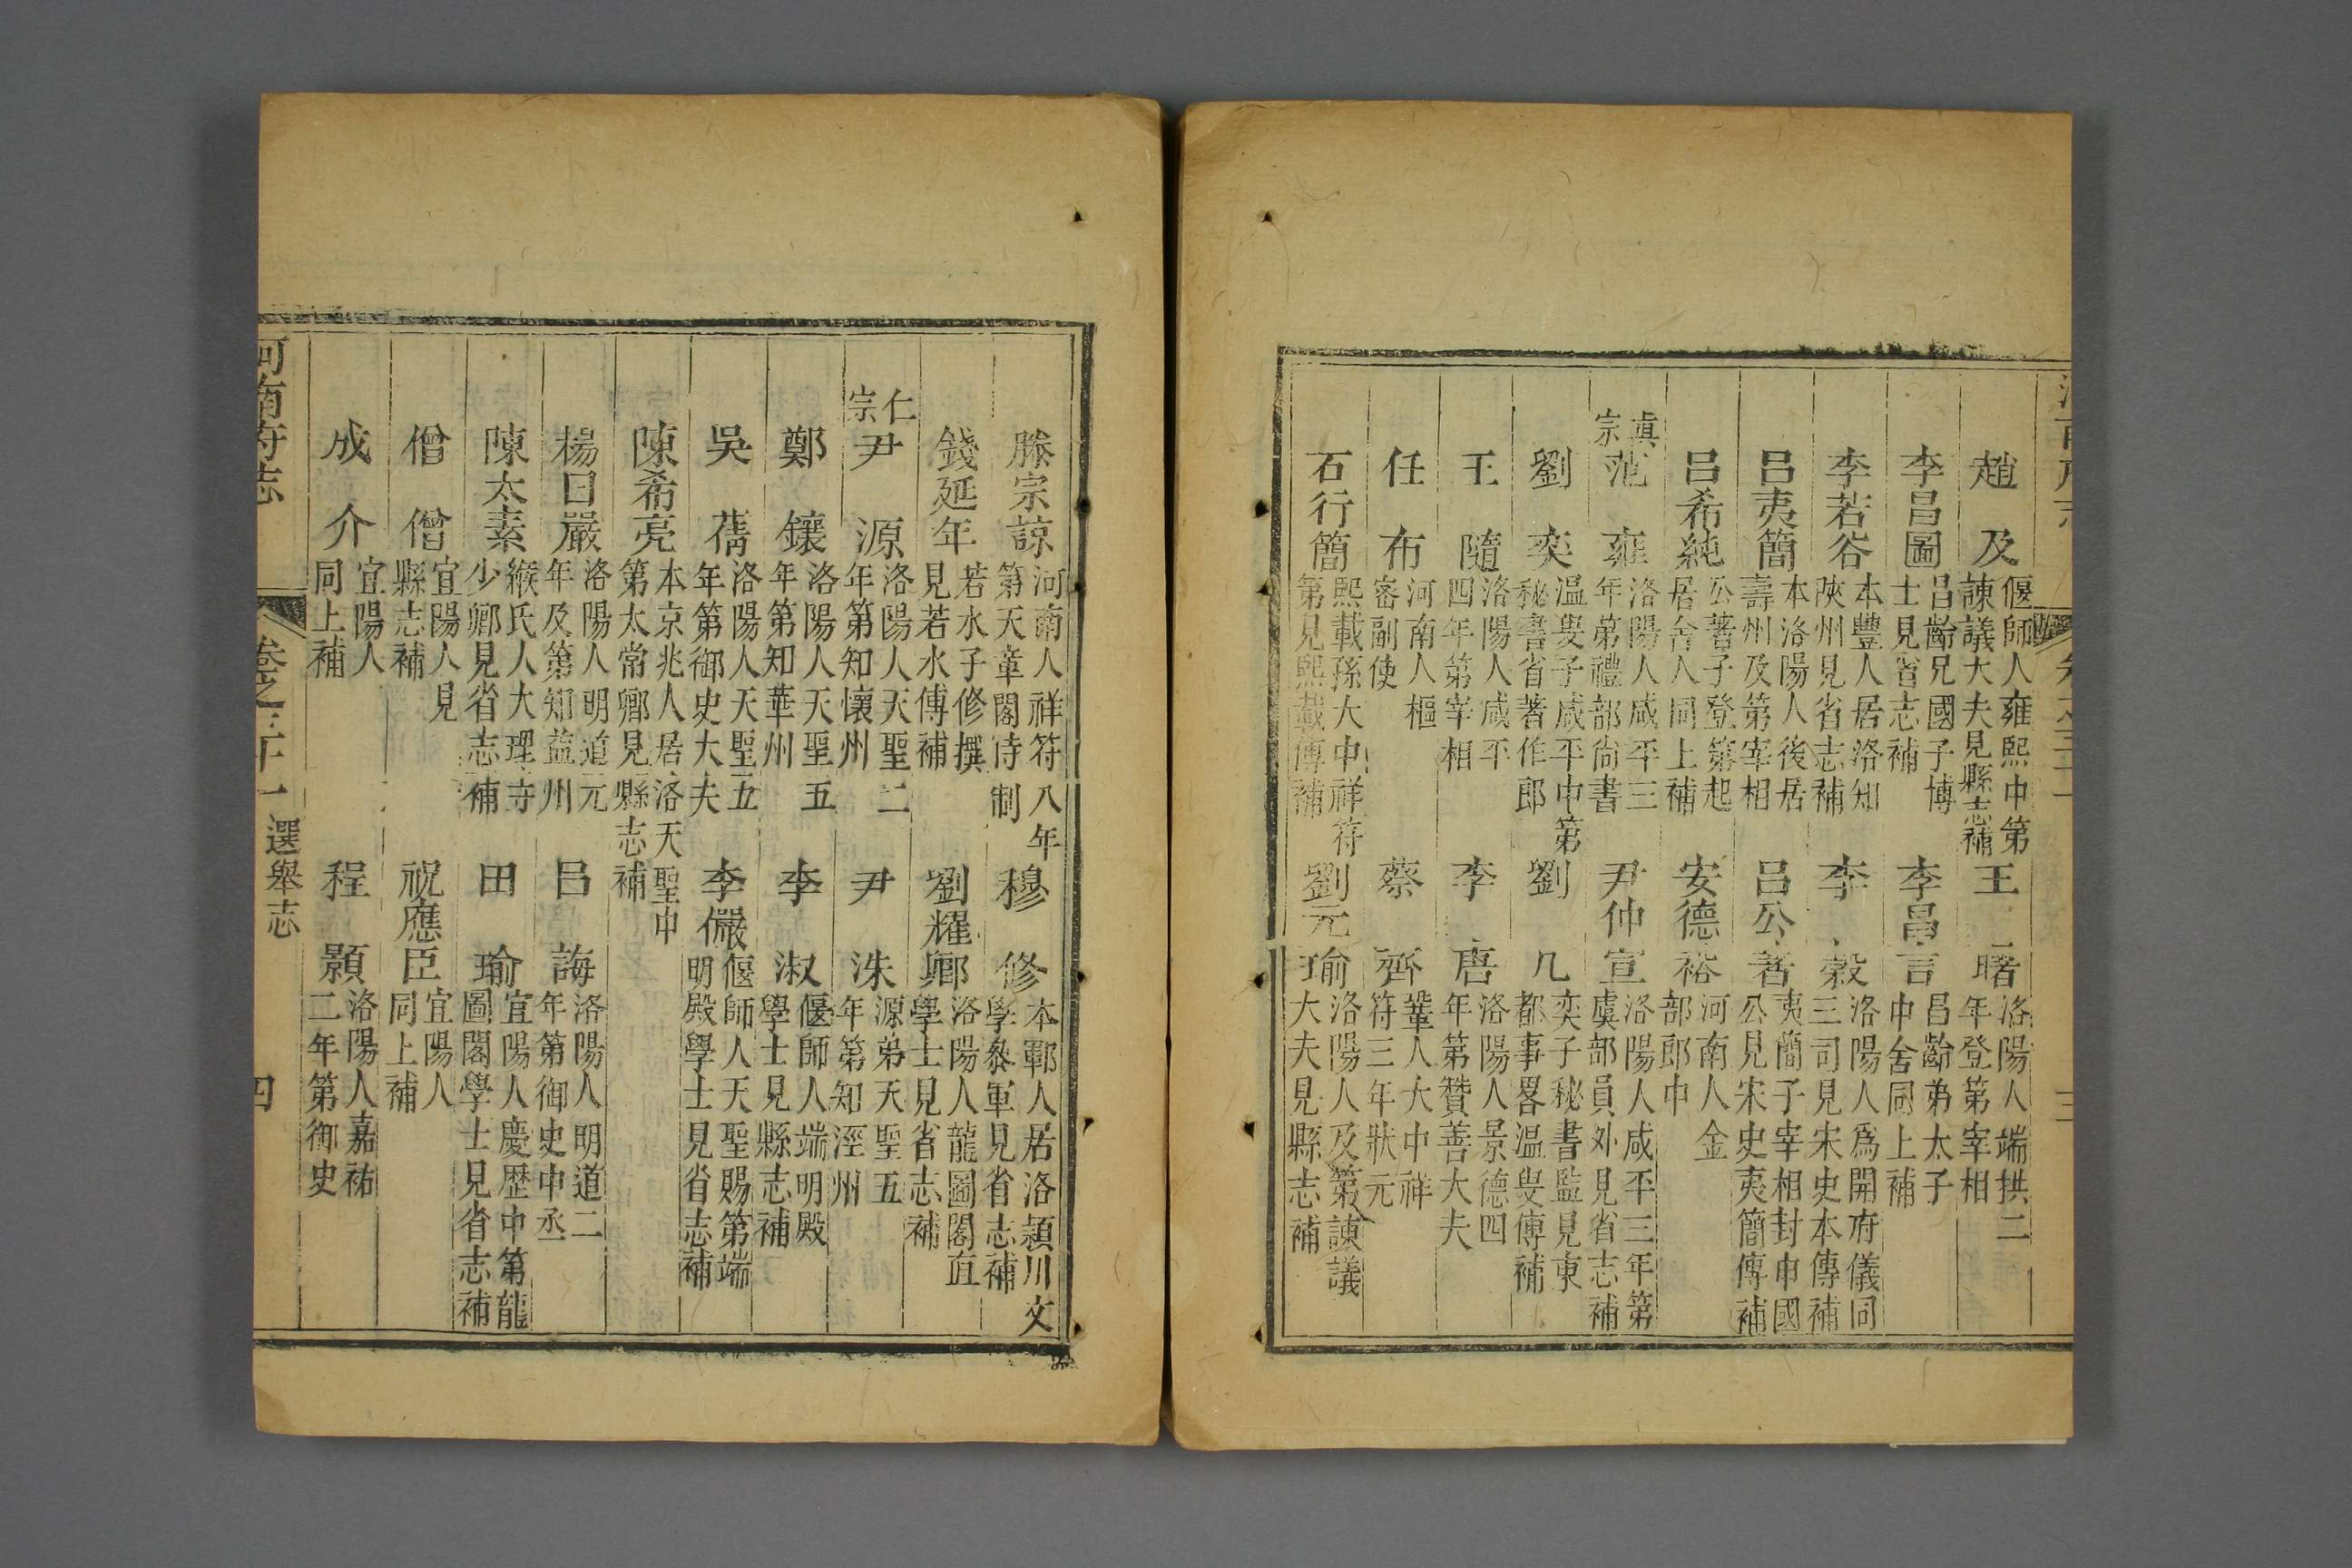 趙及 偃師人雍熙中第諫議大夫見縣志補 王曙 洛陽人端拱二年登第宰相
李昌圖 昌齡兄國子博士見省志補 李昌言 昌齡弟太子中舍同上補
李若谷 本豐人居洛知陝州見省志補 李穀 洛陽人爲開府儀同三司見宋史本傳補
呂夷簡 本洛陽人後居壽州及第宰相 呂公著 夷簡子宰相封申國公見宋史夷簡傳補
呂希純 公著子登第起居舍人同上補 安德裕 河南人金部郎中
真宗 范雍 洛陽人咸平三年第禮部尚書 尹仲宣 洛陽人咸平三年第虞部員外見省志補
劉奕 溫叟子咸平中第秘書省著作郎 劉几 奕子秘書監見東都事畧溫叟傳補
王隨 洛陽人咸平四年第宰相 李唐 洛陽人景德四年第贊善大夫
任布 河南人樞密副使 蔡齊 鞏人大中祥符三年狀元
石行簡 熙載孫大中祥符第見熙載傳補 劉元瑜 洛陽人及第諫議大夫見縣志補
三
滕宗諒 河南人祥符八年第天章閣侍制 穆修 本鄆人居洛潁川文學參軍見省志補
錢延年 若水子修撰見若水傳補 劉耀卿 洛陽人龍圖閣直學士見省志補
仁宗 尹源 洛陽人天聖二年第知懷州 尹洙 源弟天聖五年第知涇州
鄭鑲 洛陽人天聖五年第知華州 李淑 偃師人端明殿學士見縣志補
吳蒨 洛陽人天聖五年第御史大夫 李儼 偃師人天聖賜第端明殿學士見省志補
陳希亮 本京兆人居洛天聖中第太常卿見縣志補
楊日嚴 洛陽人明道元年及第知益州 呂誨 洛陽人明道二年第御史中丞
陳太素 緱氏人大理寺少卿見省志補 田瑜 宜陽人慶歷中第龍圖閣學士見省志補
僧僧 宜陽人見縣志補 祝應臣 宜陽人同上補
成介 宜陽人同上補 程顥 洛陽人嘉祐二年第御史
河南府志 卷之三十一 選舉志 四